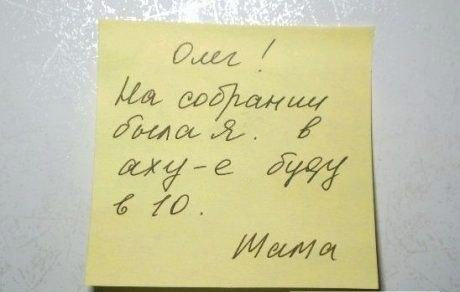 Олег!
На собрании
была я. в
аху-е буду
в 10.
Мама